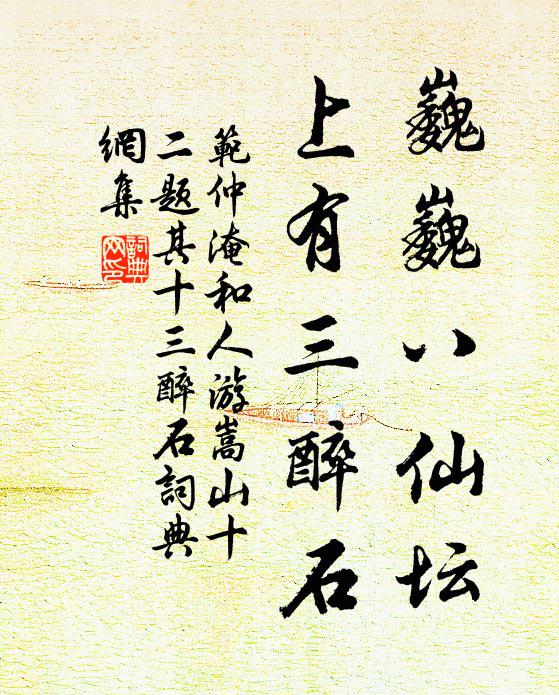 巍巍八仙坛
上有三醉石
範仲淹和人游嵩山十
二题其十三醉石詞典
網集
詞典
网印